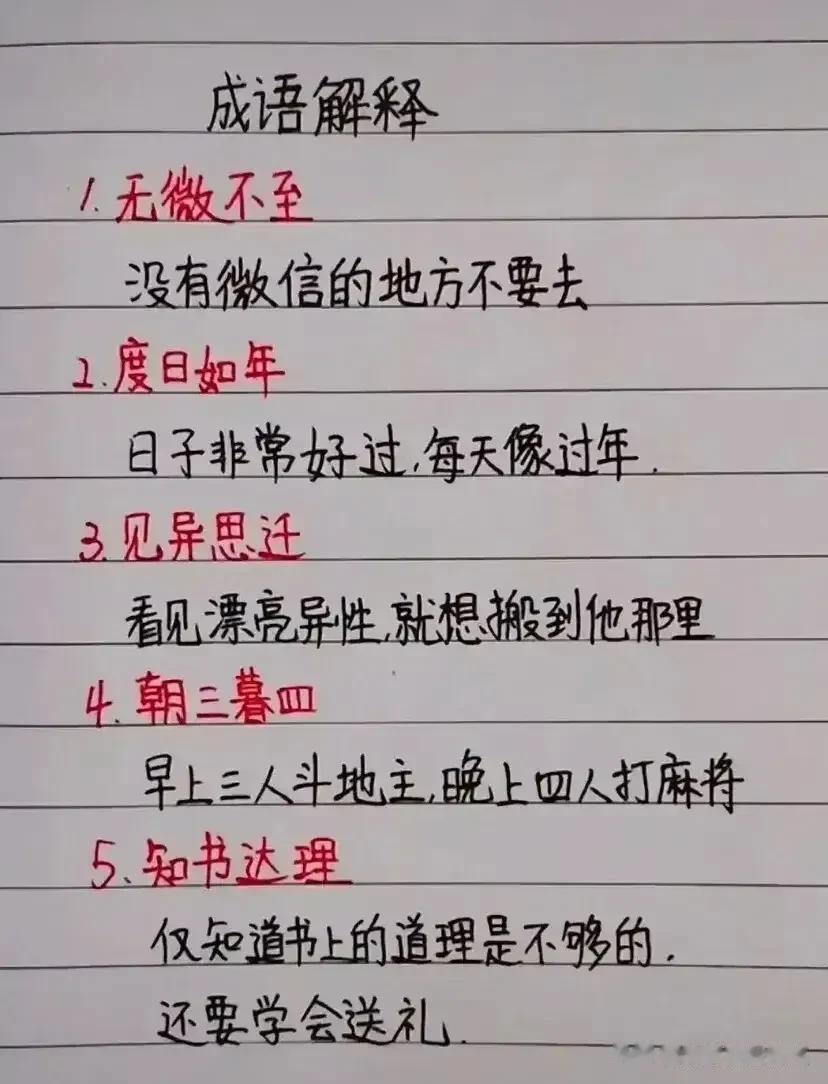 成语解释
1.无微不至
没有微信的地方不要去
2.度日如年
日子非常好过,每天像过年.
3.见异思迁
看见漂亮异性,就想搬到他那里
4.朝三暮四
早上三人斗地主,晚上四人打麻将
5.知书达理
仅知道书上的道理是不够的.
还要学会送礼.